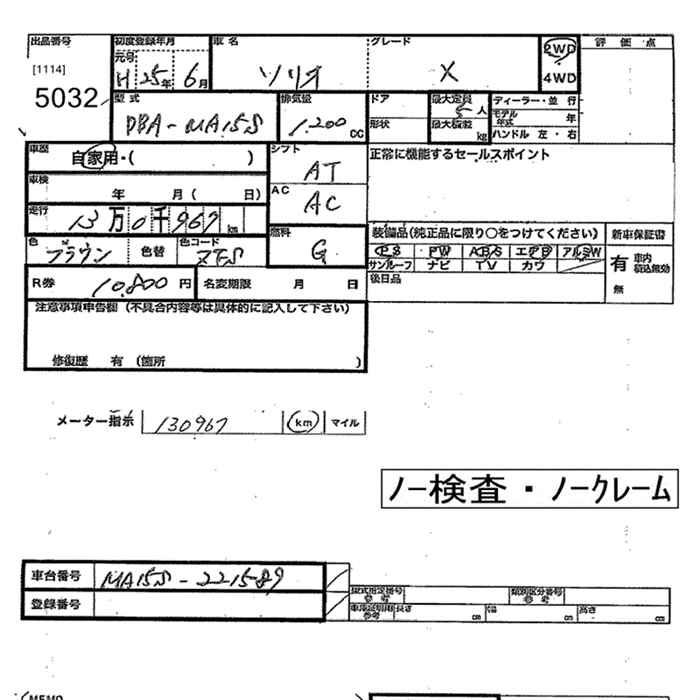 出品番号 初度登録年月 車名 グレード 評価点
[1114] 元号 2WD
H 25年 6月 ソリオ X 4WD
5032
型式 排気量 ドア 最大定員 ディーラー・並行
5人 モデル年式 年
DBA-MA15S 1.200 CC 形状 最大積載 kg ハンドル 左・右
車歴 自家用・( ) シフト 正常に機能するセールスポイント
AT
車検 年 月( 日) AC
AC
走行 13万0千967km
燃料 装備品(純正品に限り○をつけてください) 新車保証書
色 色替 色コード G PS PW ABS エアB アルミW 有 車内
ブラウン サンルーフ ナビ TV カワ 無
R券 10.800円 名変期限 月 日 後日品
注意事項申告欄(不具合内容等は具体的に記入して下さい)
修復歴 有 (箇所 )
メーター指示 130967 km マイル
ノー検査・ノークレーム
車台番号 MA15S-221589
型式指定番号 参考 類別区分番号 参考
登録番号 参考 長さ cm 幅 cm 高さ cm
MEMO